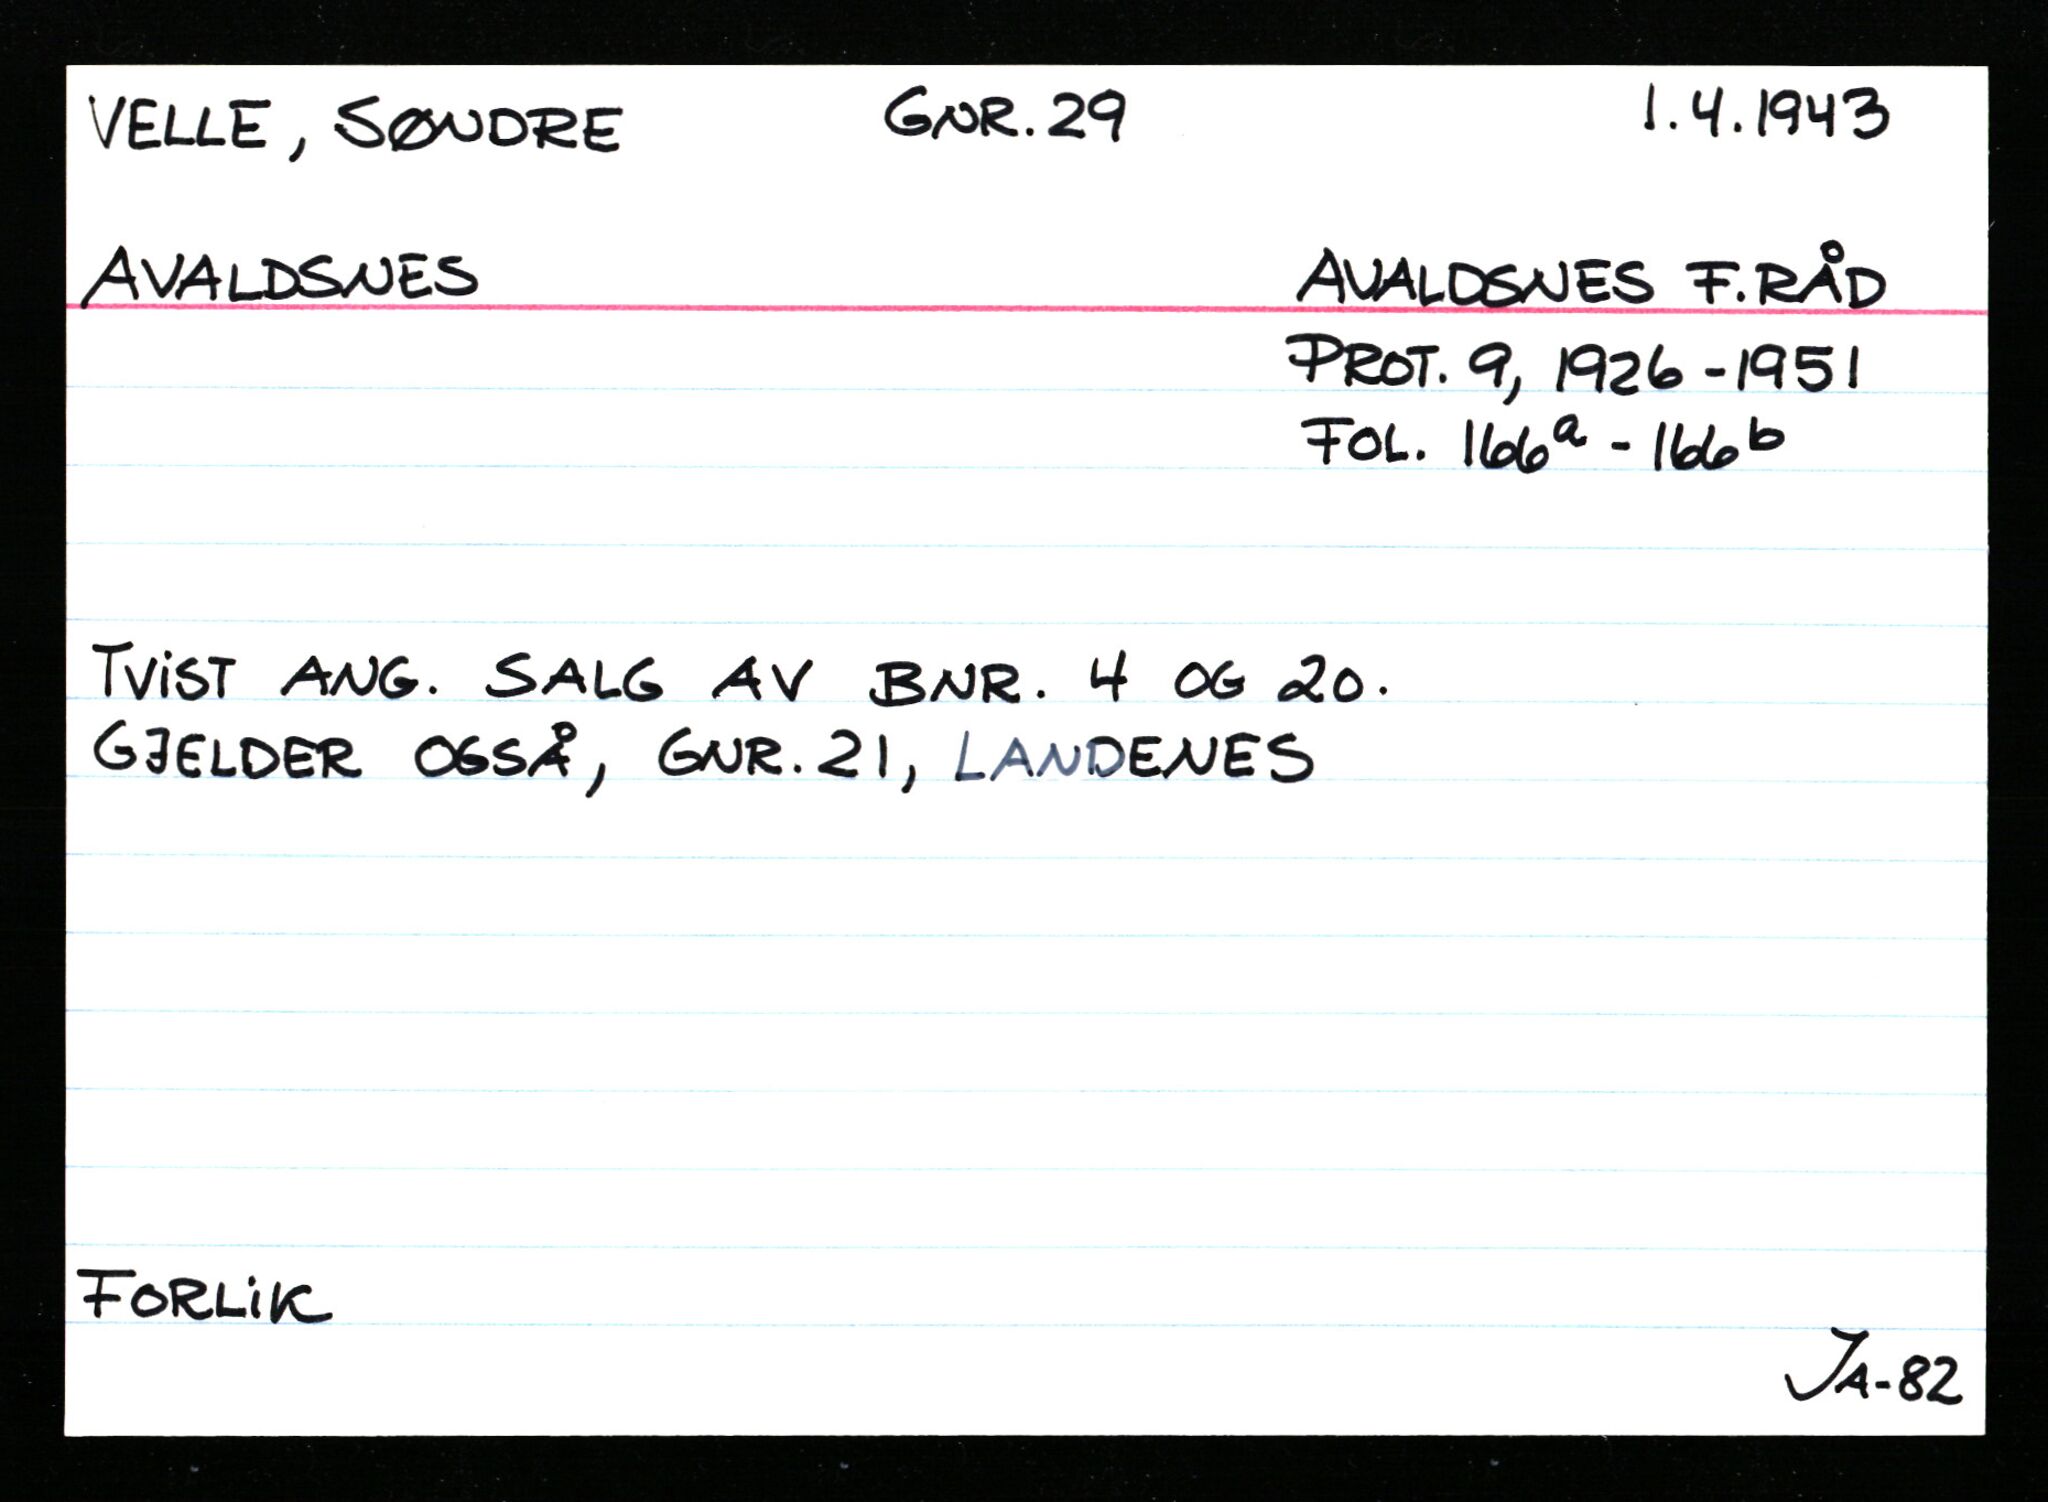 VELLE, SØNDRE GNR. 29 1.4.1943
AVALDSNES AVALDSNES F.RÅD
PROT. 9, 1926-1951
FOL. 166a - 166b
TVIST ANG. SALG AV BNR. 4 OG 20.
GJELDER OGSÅ, GNR. 21, LANDENES
FORLIK
JA-82